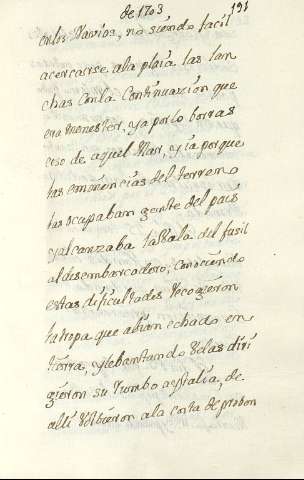 de 1703 191
en los Navios, no siendo facil
acercarse ala plaia las lan
chas con la Continuazion que
era menester, ya por lo borras
coso de aquel Mar, y ia porque
las eminencias del terreno
las ocupabam gente del pais
y alcanzaba la bala del fusil
al desembarcadero; Conociendo
estas dificultades recogieron
la tropa que abian echado en
tierra, y lebantando Velas diri
gieron su rumbo a ytalia, de
alli volbieron a la costa de probon